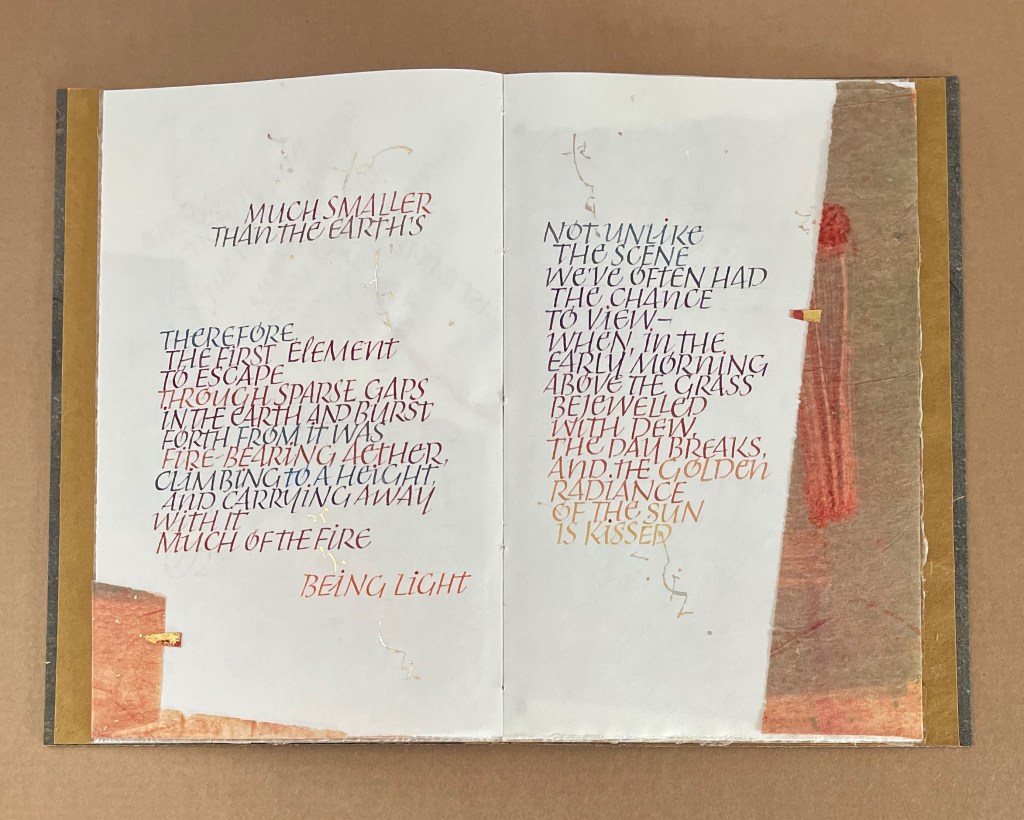 MUCH SMALLER
THAN THE EARTH'S
THEREFORE,
THE FIRST ELEMENT
TO ESCAPE
THROUGH SPARSE GAPS
IN THE EARTH AND BURST
FORTH FROM IT WAS
FIRE-BEARING AETHER,
CLIMBING TO A HEIGHT,
AND CARRYING AWAY
WITH IT
MUCH OF THE FIRE
BEING LIGHT
NOT UNLIKE
THE SCENE
WE'VE OFTEN HAD
THE CHANCE
TO VIEW—
WHEN, IN THE
EARLY MORNING
ABOVE THE GRASS
BEJEWELLED
WITH DEW,
THE DAY BREAKS,
AND THE GOLDEN
RADIANCE
OF THE SUN
IS KISSED